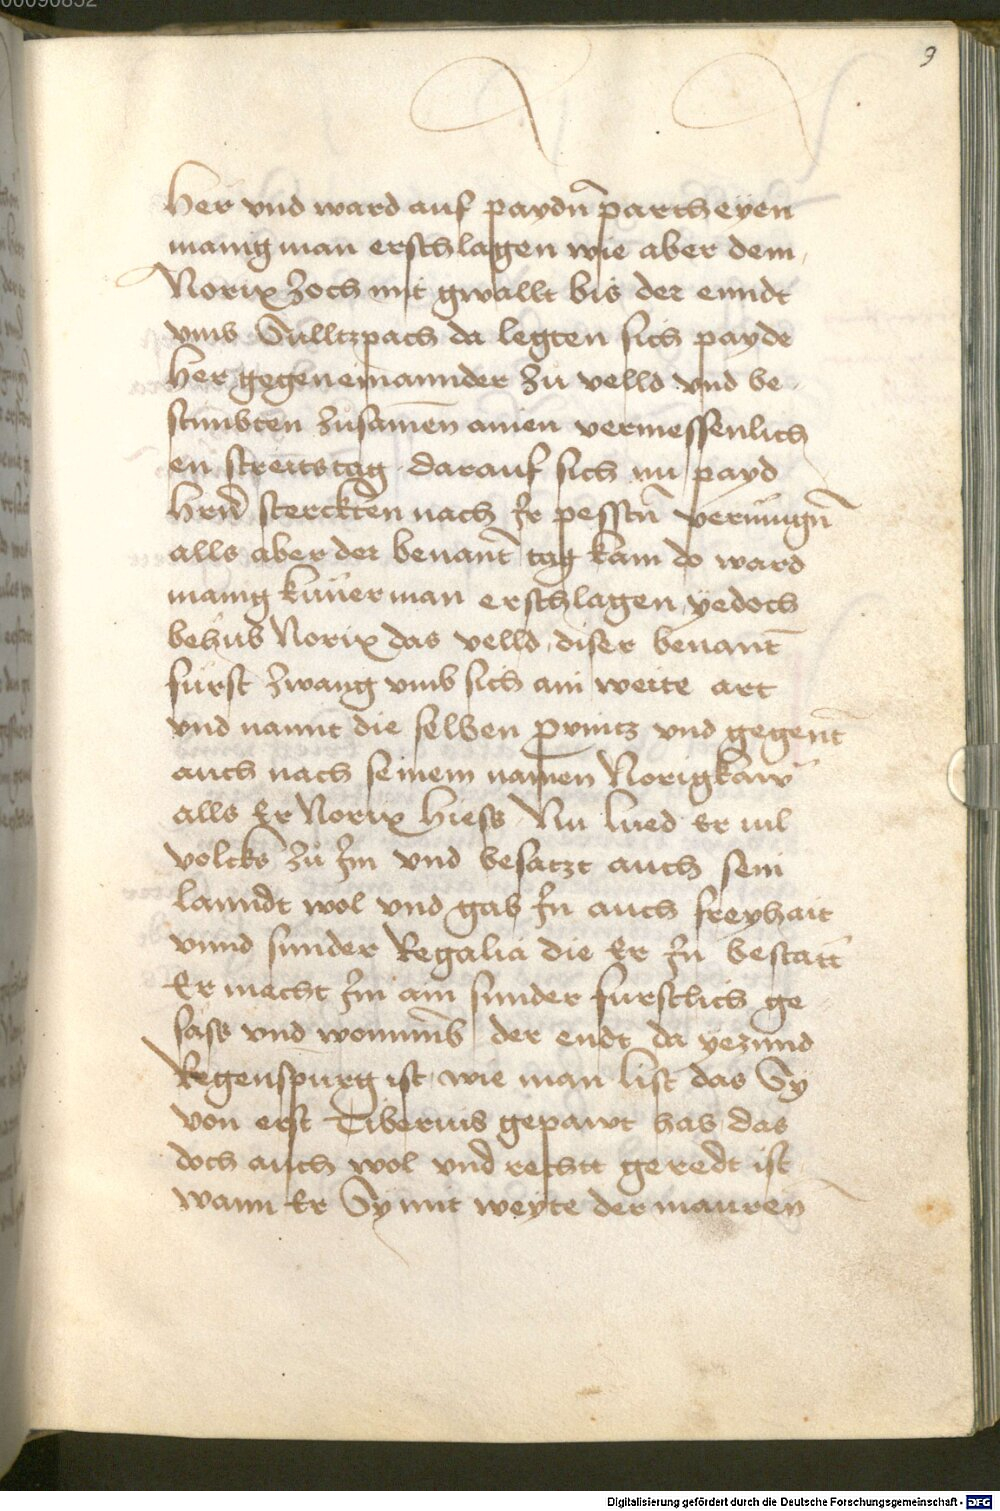 9
her vnd ward auf paydn̄ partheyen
manig man erschlagen wie aber dem
Norix zoch mit gwallt bis der enndt
vmb Sulltzpach da legten sich payde
her gegen einannder zu velld vnd be
stimbten zusamen ainen vermessenlich
en streitstag darauf sich nu payd
herrn̄ sterckten nach Jr pesstn̄ vermugn̄
alls aber der benant̄ tag kam do ward
manig kuner man erschlagen yedoch
behub Norix das velld diser benant̄
furst zwang vmb sich ain weite art
vnd nannt die selben prouintz vnd gegent̄
auch nach seinem namen Norigkaw
alls Er Norix hiess Nu lued Er uil
volcks zu Jm vnd besatzt auch sein
lanndt wol vnd gab Jn auch freyhait
vnnd sunder Regalia die Er Jn bestatt
Er macht Jm ain sunder furstlich ge
säss vnd wonnung der endt da yezund
Regenspurg ist wie man list das Sy
von erst Tiberius gepawt hab das
doch auch wol vnd rechtt geredt ist
wann Er Sy mit weyte der mauren
Digitalisierung gefördert durch die Deutsche Forschungsgemeinschaft - DFG